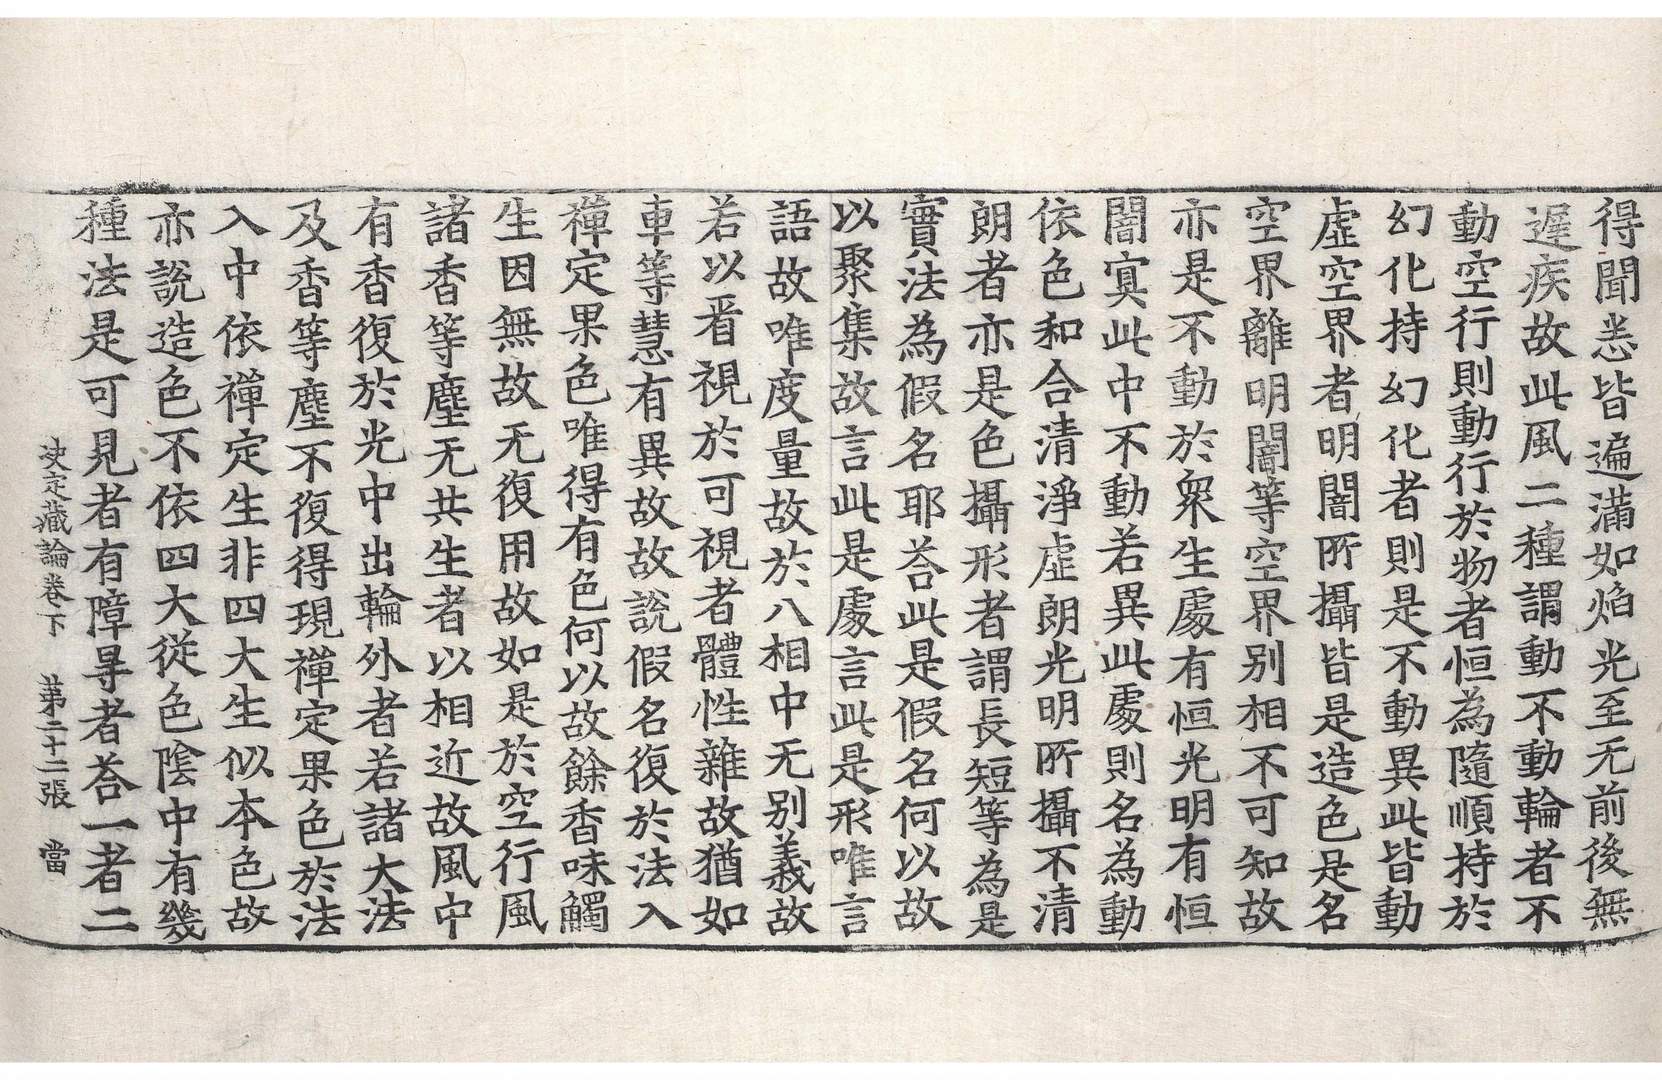 得聞悉皆遍滿如焰光至无前後無
遲疾故此風二種謂動不動輪者不
動空行則動行於物者恒為隨順持於
幻化持幻化者則是不動異此皆動
虛空界者明闇所攝皆是造色是名
空界離明闇等空界别相不可知故
亦是不動於衆生處有恒光明有恒
闇㝠此中不動若異此處則名為動
依色和合清淨虛朗光明所攝不清
朗者亦是色攝形者謂長短等為是
實法為假名耶荅此是假名何以故
以聚集故言此是處言此是形唯言
語故唯度量故於八相中无别義故
若以看視於可視者體性雜故猶如
車等慧有異故故說假名復於法入
禪定果色唯得有色何以故餘香味觸
生因無故无復用故如是於空行風
諸香等塵无共生者以相近故風中
有香復於光中出輪外者若諸大法
及香等塵不復得現禪定果色於法
入中依禪定生非四大生似本色故
亦說造色不依四大從色陰中有幾
種法是可見者有障㝵者荅一者二
决定藏論卷下 第二十二張 當